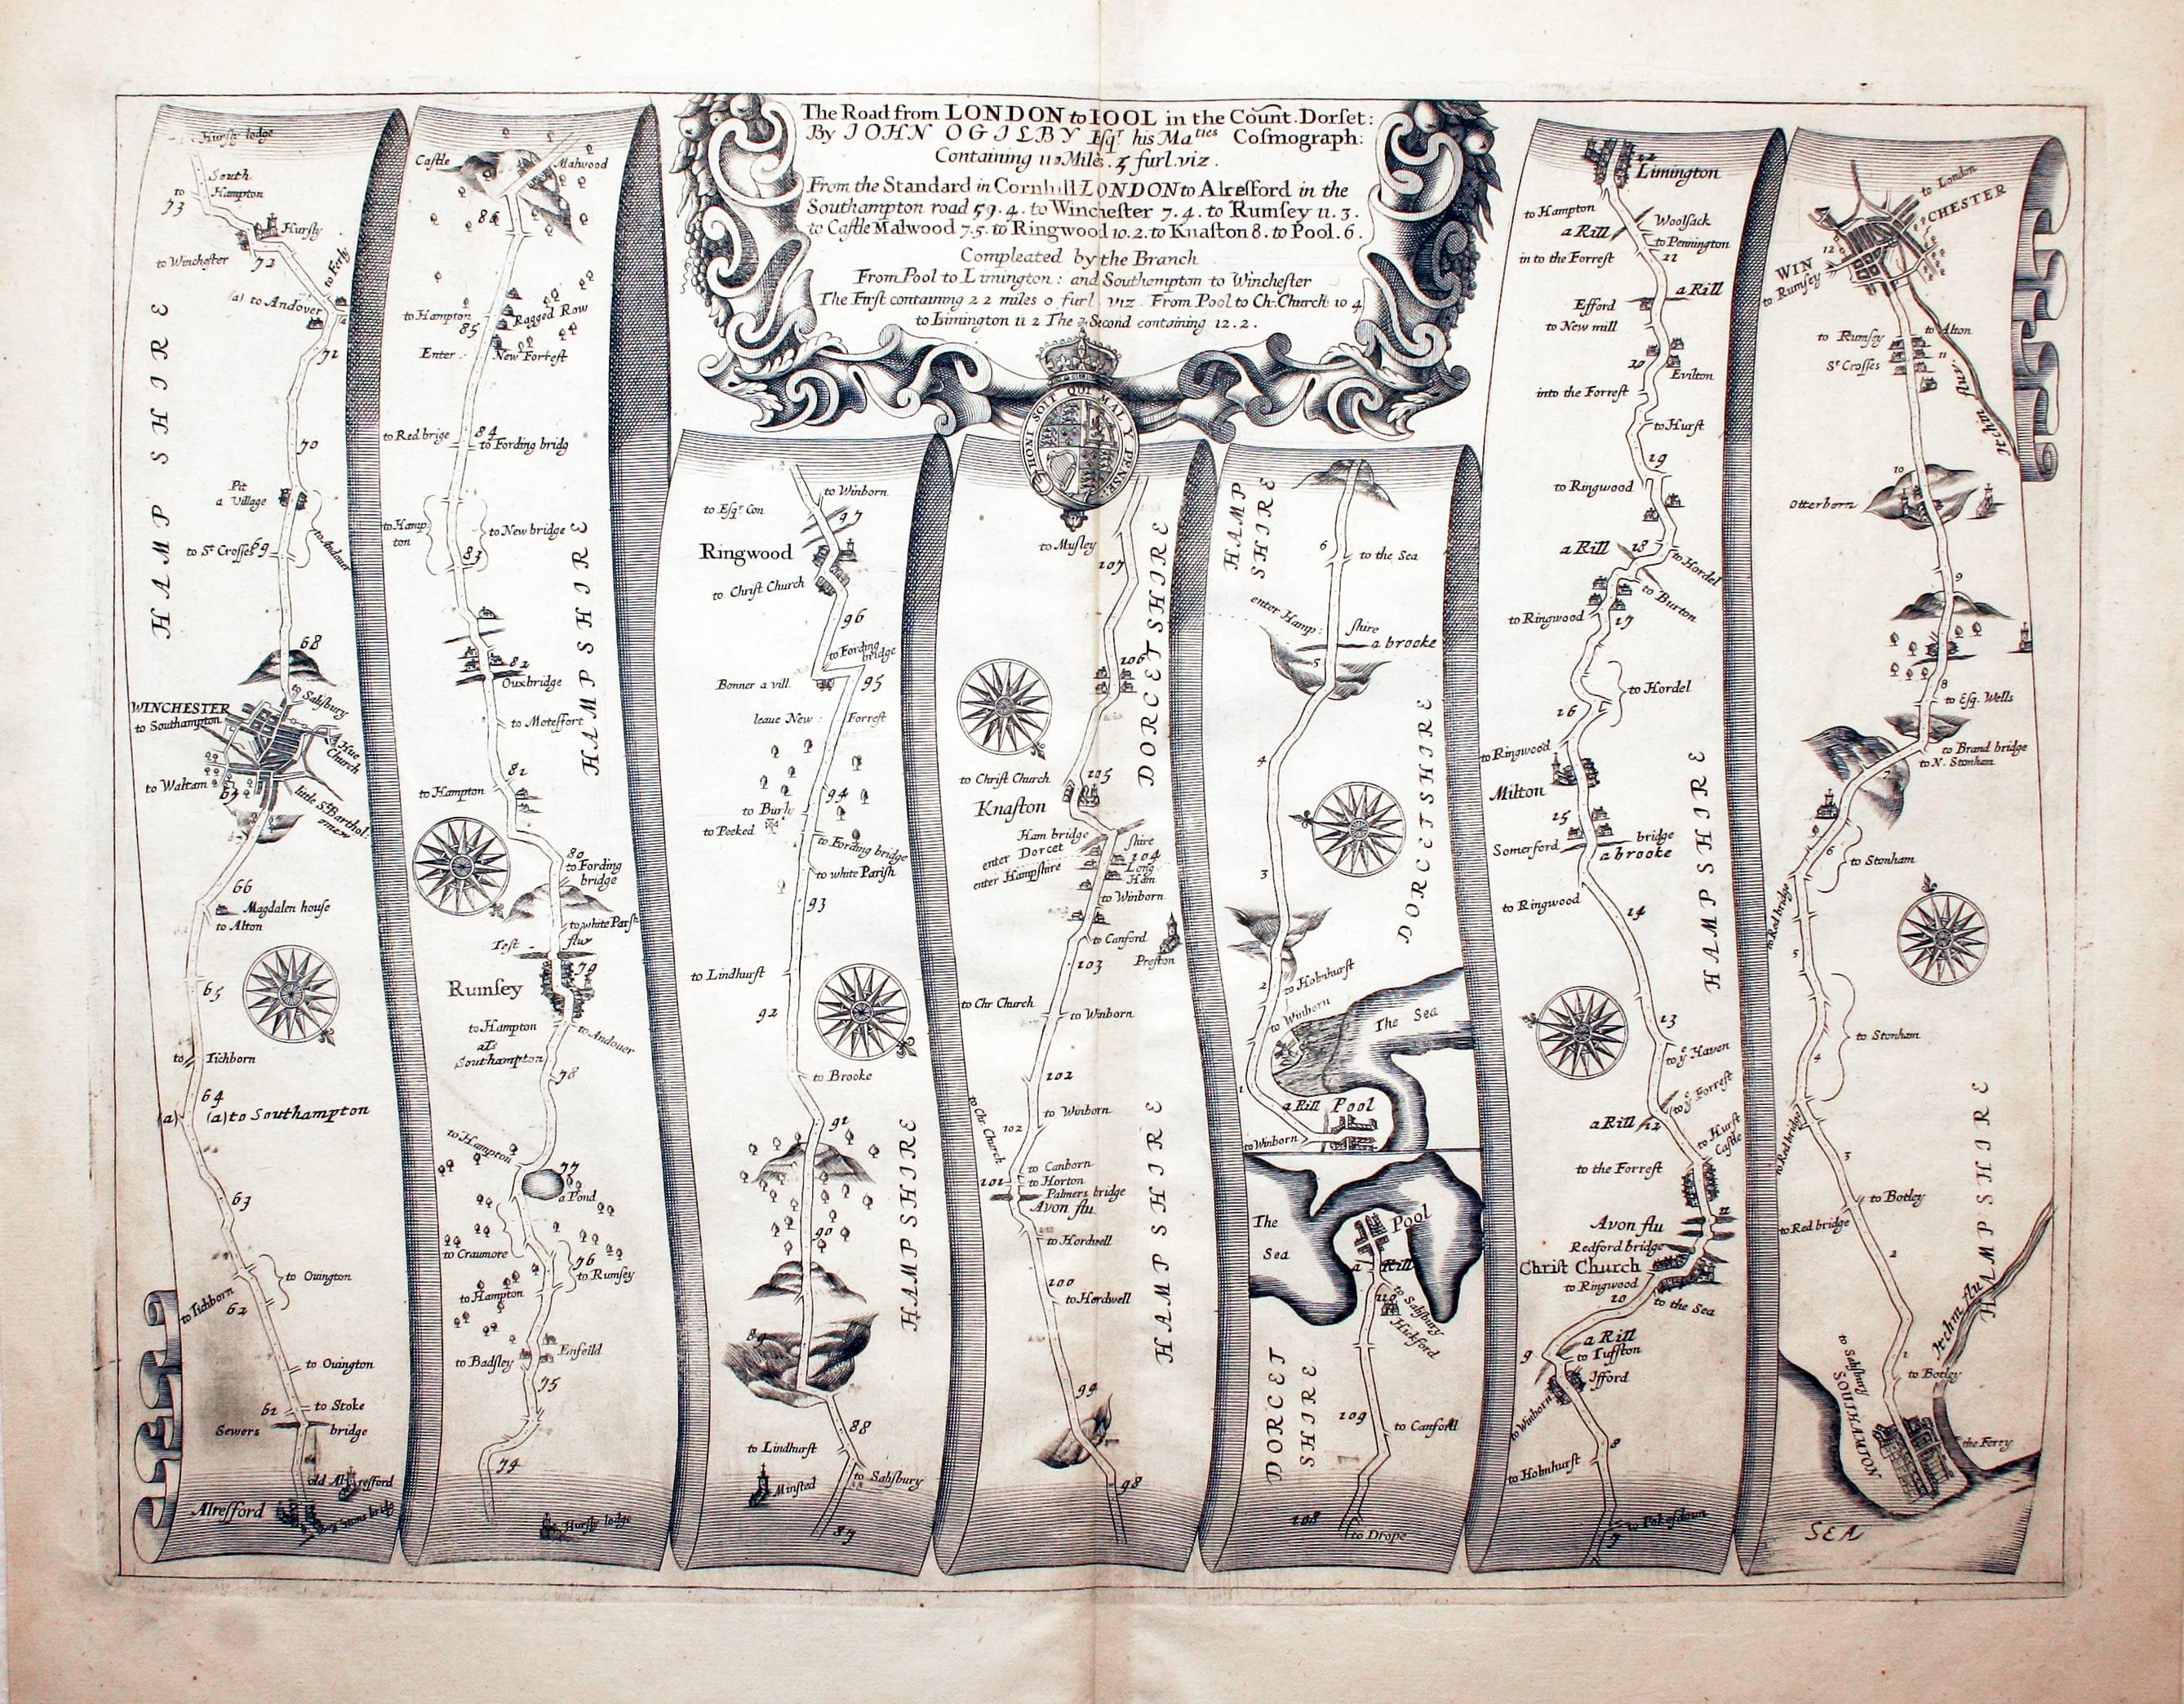 The Road from LONDON to POOL in the Count. Dorſet:
By JOHN OGILBY Eſqr. his Maties Coſmograph:
Containing 110 Miles. 5 furl. viz.
From the Standard in Cornhill LONDON to Alresford in the
Southampton road 59.4. to Wincheſter 7.4. to Rumſey 11.3.
to Caſtle Malwood 7.5. to Ringwood 10.2. to Knaſton 8. to Pool. 6.
Compleated by the Branch
From Pool to Limington: and Southampton to Wincheſter
The Firſt containing 22 miles 0 furl viz. From Pool to Chr. Church 10 4
to Limington 11 2 The Second containing 12. 2.
HONI SOIT QUI MAL Y PENSE
Hurſly lodge
South
Hampton
to
73
Hurſly
to Wincheſter
72
to Ferly
(a) to Andover
71
HAMP SHIRE
70
Pit
a Village
to Andover
to St. Croſſes
69
68
to Saliſbury
WINCHESTER
to Southampton
A Hue
Church
to Waltam
67
little St. Barthol:
omew
66
Magdalen house
to Alton
65
to Tichborn
64
(a)
(a) to Southampton
63
to Ovington
to Tichborn
62
to Ovington
61
to Stoke
Sewers bridge
old Alresford
Alresford
a Stone bridg
Caſtle
Malwood
86
to Hampton
85
Ragged Row
Enter New Forreſt
to Red brige
84
to Fording bridg
to Hamp
ton
to New bridge
83
HAMPSHIRE
82
Ouxbridge
to Moteſfort
81
to Hampton
80
to Fording
bridge
to white Pariſh
Teſt fluv
79
Rumſey
to Hampton
als
Southampton
to Andover
78
to Hampton
77
a Pond
to Craumore
76
to Rumſey
to Hampton
Enfeild
to Badſley
75
74
Hurſly lodge
to Winborn
to Eſqr. Con
97
Ringwood
to Chriſt Church
96
to Fording
bridge
Bonner a vill.
95
leave New: Forreſt
to Burly
94
to Peeked
to Fording bridge
to white Pariſh
93
to Lindhurſt
92
to Brooke
91
HAMPSHIRE
90
89
88
to Lindhurſt
Minſted
to Saliſbury
87
to Muſley
107
DORCETSHIRE
106
to Chriſt Church
105
Knaſton
Ham bridge
enter Dorcet shire
104
enter Hampſhire
Long
Ham
to Winborn
to Canford
103
Preſton
to Chr Church
to Winborn
102
to Winborn
to Chr. Church
102
to Canborn
101
to Horton
Palmers bridge
Avon flu.
to Hordwell
HAMPSHIRE
100
to Hordwell
99
98
HAMP
SHIRE
6
to the Sea
enter Hamp: ſhire
a brooke
5
DORCETSHIRE
4
3
2
to Hobnhurſt
to Winborn
The Sea
1
a Rill
Pool
to Winborn
The
Sea
Pool
a Rill
110
to Saliſbury
Hickford
DORCET
SHIRE
109
to Canford
108
to Drope
22
Limington
to Hampton
Woolſack
a Rill
to Pennington
in to the Forreſt
21
Efford
a Rill
to New mill
20
Evilton
into the Forreſt
to Hurſt
19
to Ringwood
a Rill
18
to Hordel
to Burton
to Ringwood
17
to Hordel
16
to Ringwood
Milton
15
Somerford
bridge
a brooke
HAMPSHIRE
to Ringwood
14
13
to ye Haven
to ye Forreſt
a Rill
12
to Hurſt
Caſtle
to the Forreſt
Avon flu
11
Redford bridge
Chriſt Church
to Ringwood
10
to the Sea
a Rill
9
to Tuffton
Ifford
to Winborn
8
to Hobnhurſt
to Pokesdown
7
to London
WINCHESTER
12
to Rumſey
to Rumſey
to Alton
11
St. Croſſes
Itchin fluv.
10
Otterborn
9
8
to Eſq. Wells
to Brand bridge
to N. Stonham
7
6
to Stonham
to Red bridge
5
to Stonham
4
to Red bridge
3
to Botley
to Red bridge
2
HAMPSHIRE
Itchin flu
1
to Botley
to Saliſbury
SOUTHAMTON
the Ferry
SEA